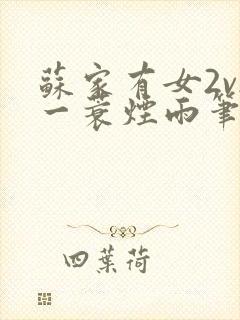 蘇家有女2v
一蓑煙雨筆
四葉荷